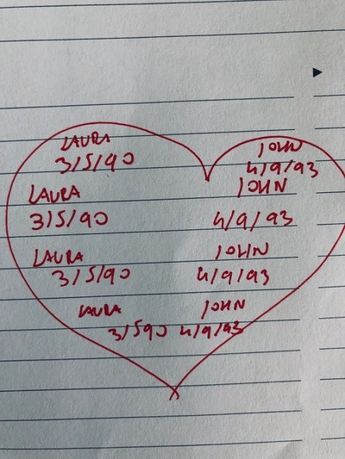 LAURA JOHN
3/5/90 4/9/93
LAURA JOHN
3/5/90 4/9/93
LAURA JOHN
3/5/90 4/9/93
LAURA JOHN
3/590 4/9/93